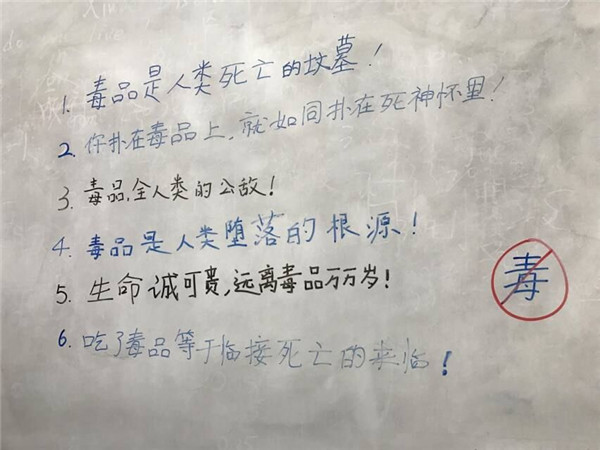 1. 毒品是人类死亡的坟墓!
2. 你扑在毒品上,就如同扑在死神怀里!
3. 毒品,全人类的公敌!
4. 毒品是人类堕落的根源!
5. 生命诚可贵,远离毒品万万岁!
毒
6. 吃了毒品等于临接死亡的来临!